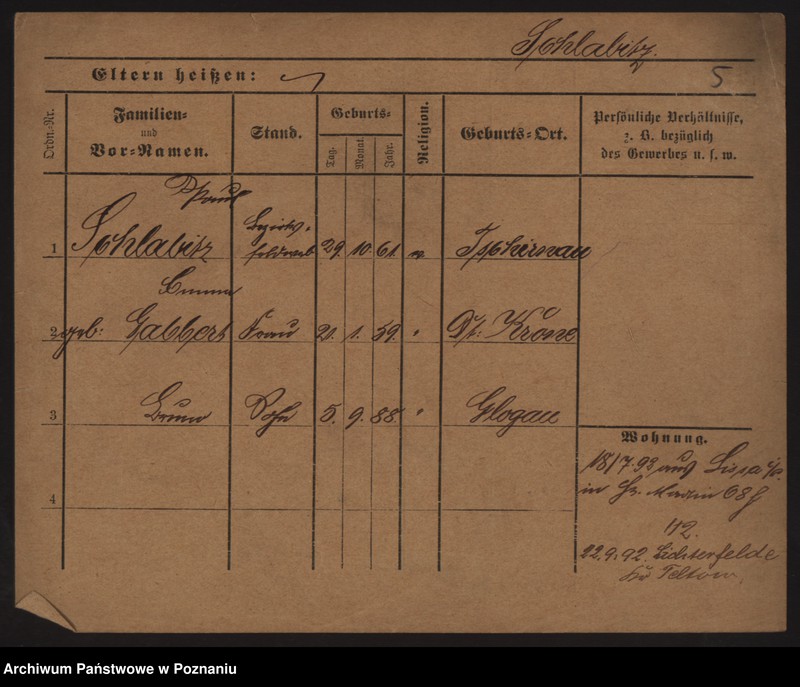 Schlabitz.
Eltern heißen:
5
Ordn.-Nr.
Familien-
und
Vor-Namen.
Stand.
Geburts-
Tag.
Monat.
Jahr.
Religion.
Geburts-Ort.
Persönliche Verhältnisse,
z. B. bezüglich
des Gewerbes u. s. w.
Paul
1 Schlabitz Bezirks- feldwebel 29. 10. 61. Tschirnau
Emma
2 geb: Gabbert Frau 21. 1. 59. " Dt: Krone
3 Bruno Sohn 5. 9. 88. " Glogau
Wohnung.
18/7. 93 aus Lissa i/P.
in St. Martin 68
4
112.
22.9.92. Lichterfelde
Kr Teltow.
Archiwum Państwowe w Poznaniu